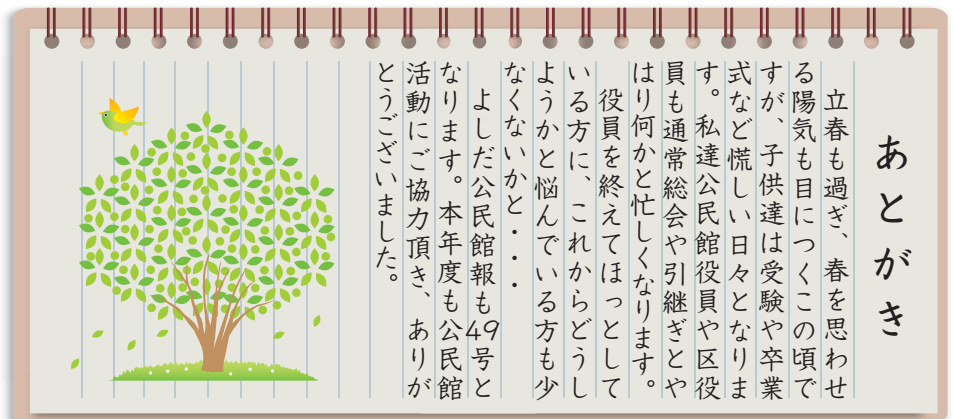 あとがき
立春も過ぎ、春を思わせ
る陽気も目につくこの頃で
すが、子供達は受験や卒業
式など慌しい日々となりま
す。私達公民館役員や区役
員も通常総会や引継ぎとや
はり何かと忙しくなります。
役員を終えてほっとして
いる方に、これからどうし
ようかと悩んでいる方も少
なくないかと・・・
よしだ公民館報も49号と
なります。本年度も公民館
活動にご協力頂き、ありが
とうございました。